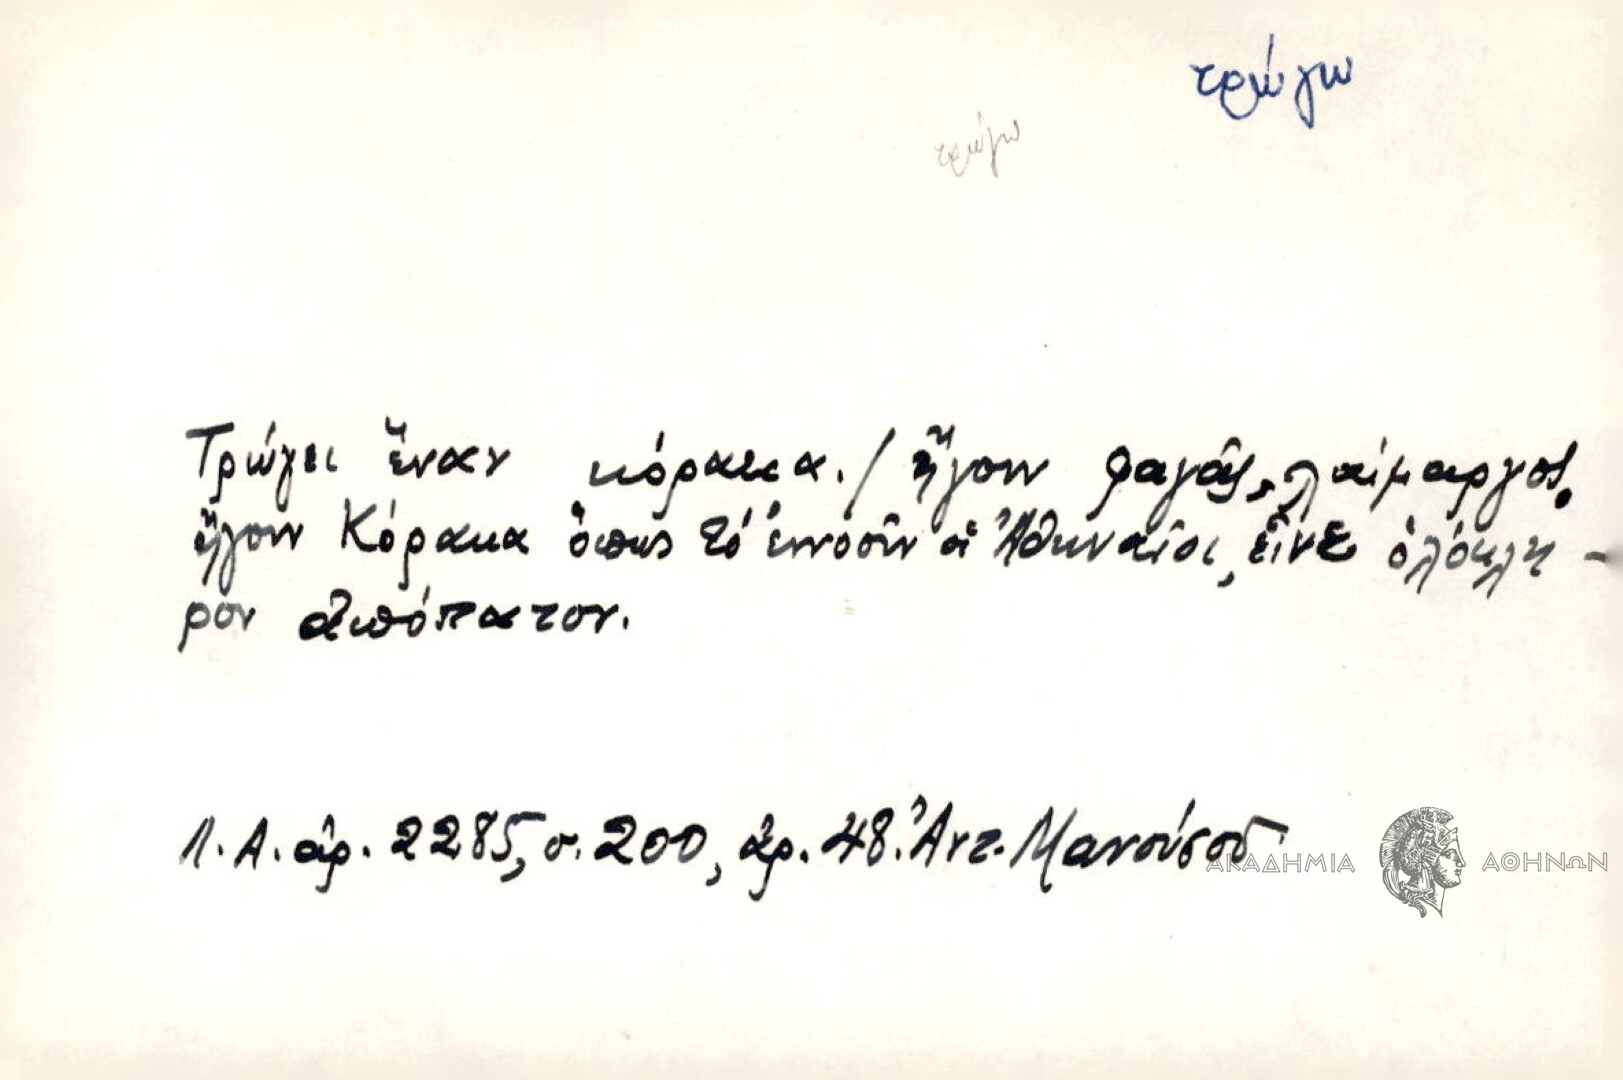 τρώγω
τρώγω
Τρώγει ἕναν κόρακα. / ἤγουν φαγᾶς, λαίμαργος.
ἤγουν Κόρακα ὅπως τό ἐννοοῦν οἱ Ἀθηναῖοι, εἶνε ὁλόκλη-
ρον ἀπόπατον.
Λ.Α. ἀρ. 2285, σ. 200, ἀρ. 48. Ἀντ. Μανούσου
ΑΚΑΔΗΜΙΑ ΑΘΗΝΩΝ